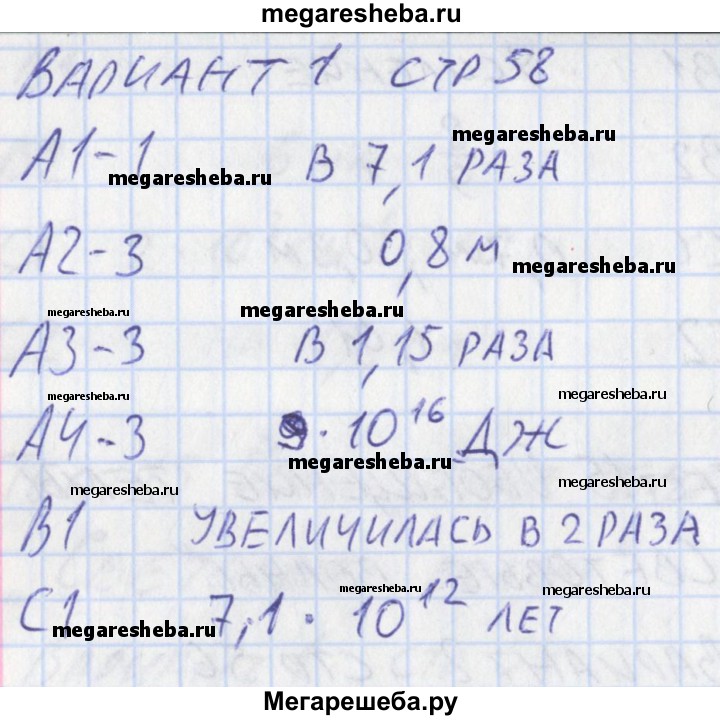 megaresheba.ru
ВАРИАНТ 1 СТР 58
megaresheba.ru
А1-1 В 7,1 РАЗА
megaresheba.ru
А2-3 0,8 м
megaresheba.ru
megaresheba.ru
megaresheba.ru
А3-3 В 1,15 РАЗА
megaresheba.ru
megaresheba.ru
А4-3 9·10^16 ДЖ
megaresheba.ru
megaresheba.ru
megaresheba.ru
В1 УВЕЛИЧИЛАСЬ В 2 РАЗА
megaresheba.ru
megaresheba.ru
С1 7,1·10^12 ЛЕТ
megaresheba.ru
megaresheba.ru
Мегарешеба.ру